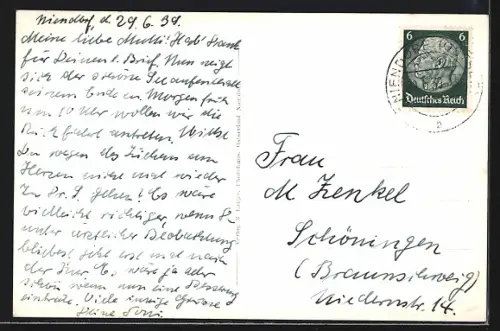 Niendorf, d. 29.6.39.
Meine liebe Mutti! Hab' Dank
für Deinen l. Brief. Nun neigt
sich der schöne Seeaufenthalt
seinem Ende zu. Morgen früh
um 10 Uhr wollen wir die
Rückfahrt antreten. Willst
Du wegen des Ziehens am
Herzen nicht mal wieder
zu Dr. S. gehen? Es wäre
vielleicht richtiger, wenn Du
unter ärztlicher Beobachtung
bliebest
wäre ja sehr
schön wenn nun eine Besserung
einträte. Viele innige Grüsse
Deine
6 6
Deutsches Reich
NIENDORF
b
Frau
M. Zenkel
Schöningen
(Braunschweig)
Niedernstr. 14.